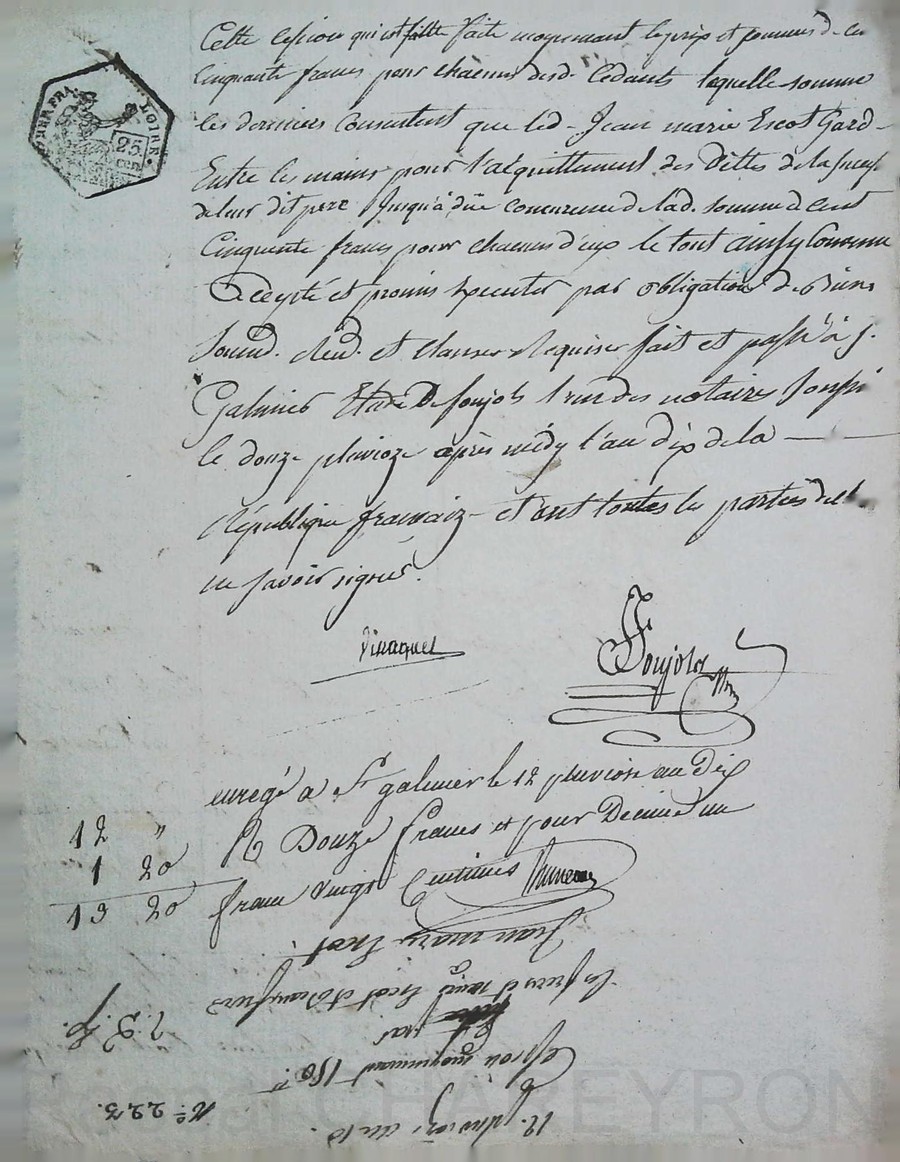 Cette cession qui est faitte faite moyenant le prix et somme de cen
cinquante francs pour chacuns desd. cedants laquelle somme
les derniers consentent que led. Jean marie Escot Gard
Entre les mains pour l'acquittement des dettes de la
de leur dit pere jusqu'à düe concurrence de lad. somme de cent
Cinquante francs pour chacuns d'eux le tout ainsy convenu
accepté et promis executer par obligation de Biens
soumd. et clauses Requises fait et passé à S.
Galmier Etude De soujols l'un des notaires soussi
le douze plivioze après midy l'an dix de la
République francaize et ont toutes les parties
ne savoir signer.
Soujolos
enregé a St galmier le 12 pluviose an Dix
12 " R Douze francs et pour Decime un
1 20
13 20 franc vingt Centimes
Jean mary Escot
les freres et Escot
cession moyennant 150
N.o 223.
12. pluvioze an 10.
LOIRE
25
CHAPEYRON